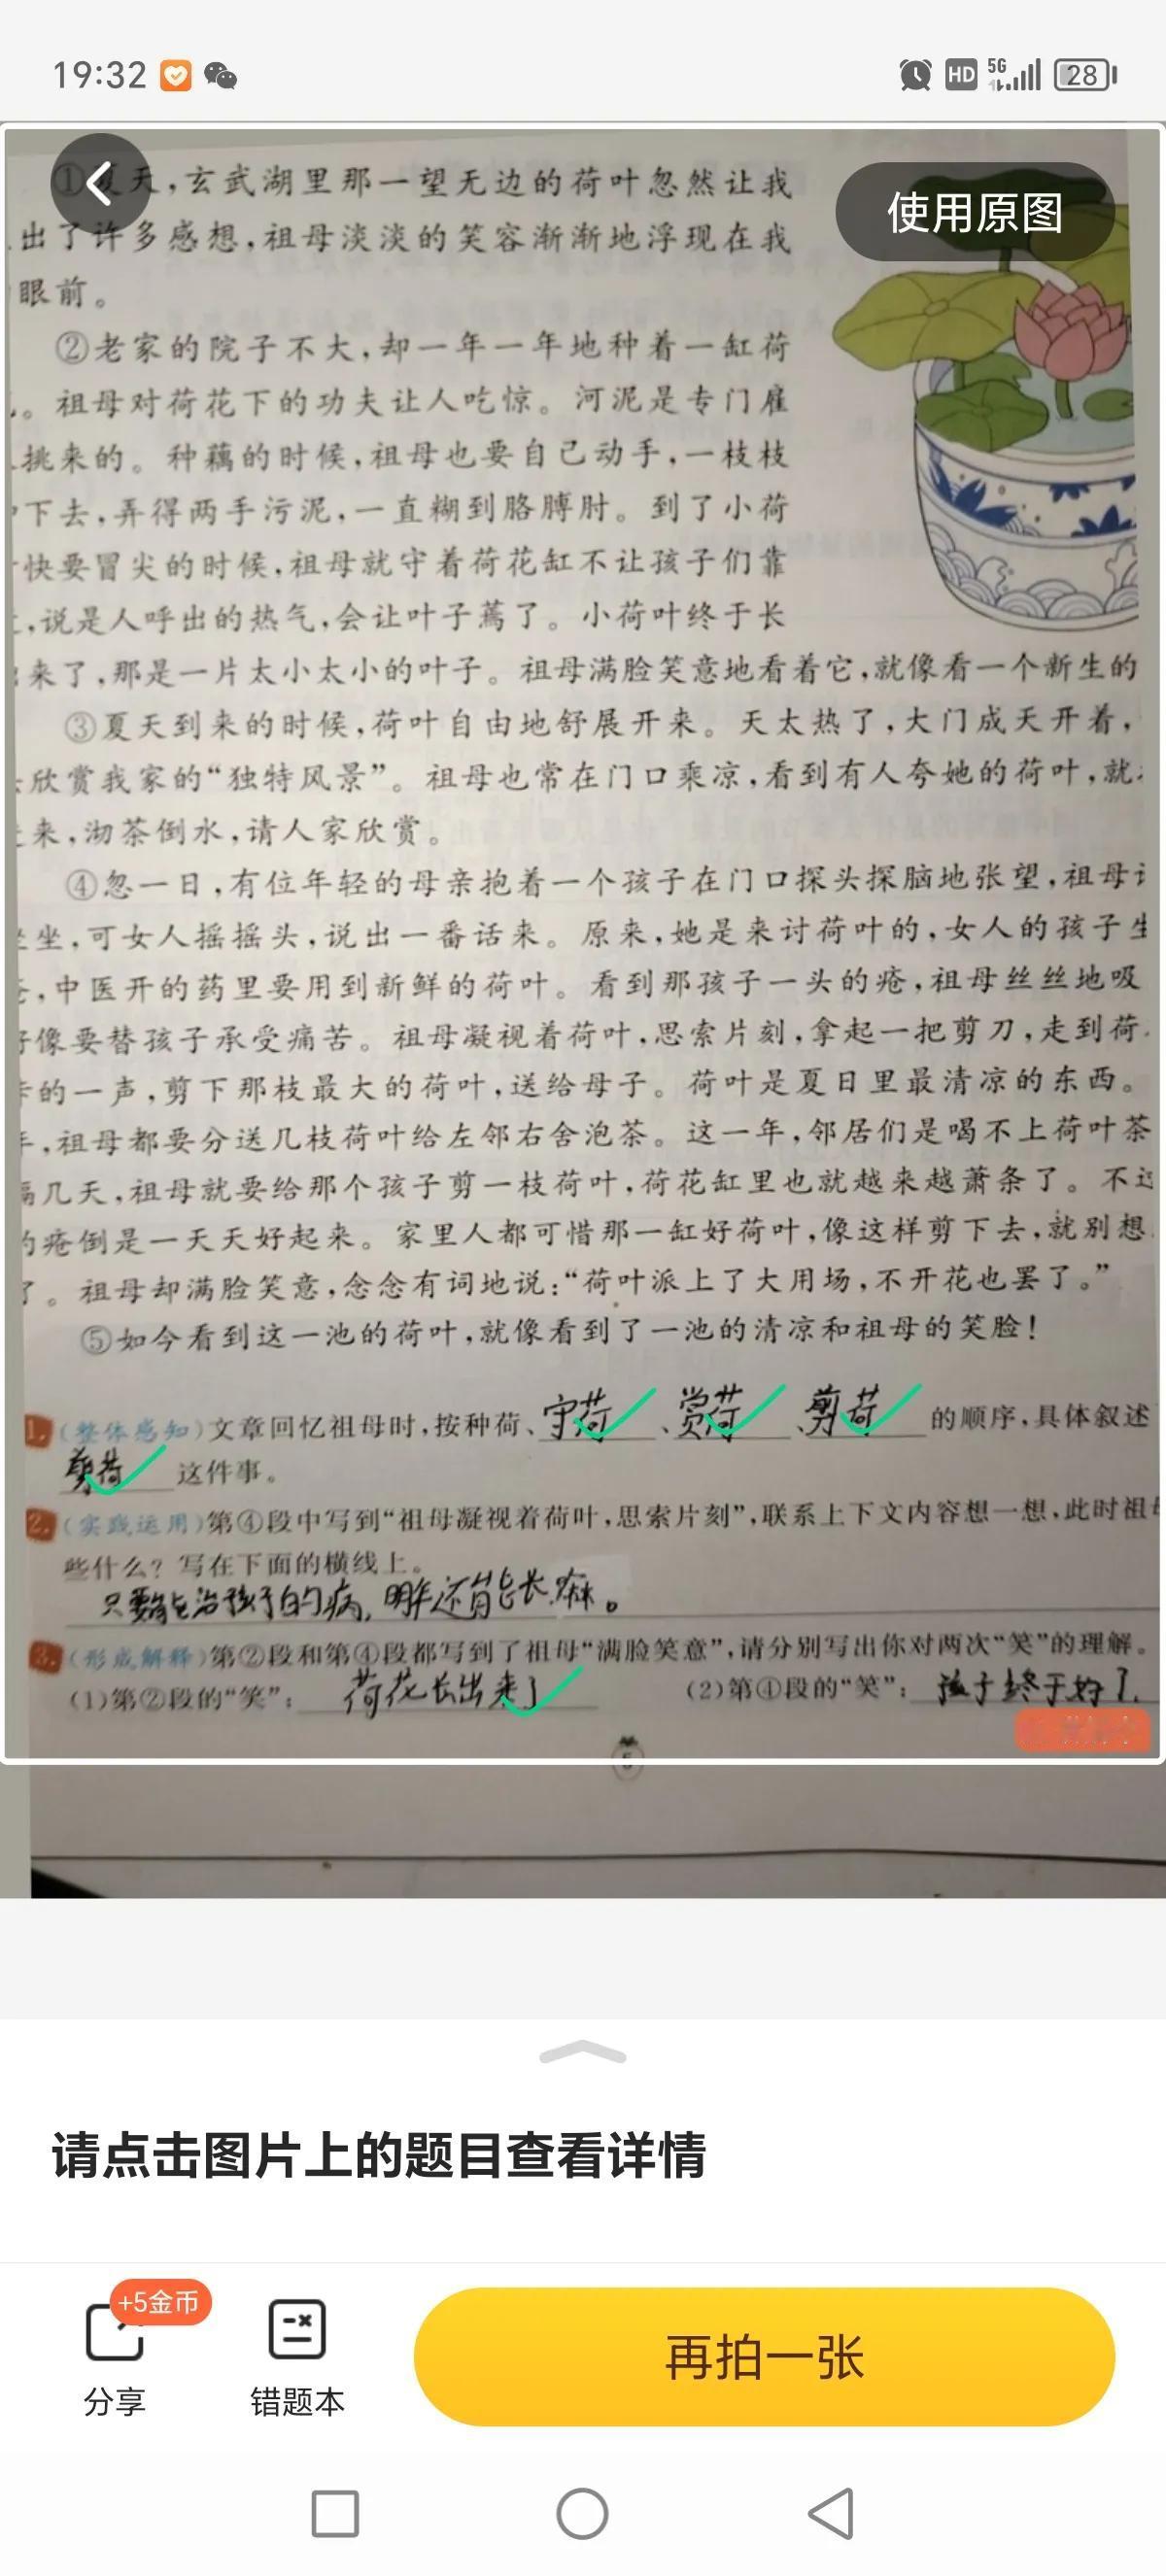 19:32
HD
5G
28
①夏天,玄武湖里那一望无边的荷叶忽然让我
使用原图
出了许多感想,祖母淡淡的笑容渐渐地浮现在我
眼前。
②老家的院子不大,却一年一年地种着一缸荷
。祖母对荷花下的功夫让人吃惊。河泥是专门雇
挑来的。种藕的时候,祖母也要自己动手,一枝枝
下去,弄得两手污泥,一直糊到胳膊肘。到了小荷
快要冒尖的时候,祖母就守着荷花缸不让孩子们靠
,说是人呼出的热气,会让叶子蔫了。小荷叶终于长
来了,那是一片太小太小的叶子。祖母满脸笑意地看着它,就像看一个新生的
③夏天到来的时候,荷叶自由地舒展开来。天太热了,大门成天开着,
欣赏我家的“独特风景”。祖母也常在门口乘凉,看到有人夸她的荷叶,就
来,沏茶倒水,请人家欣赏。
④忽一日,有位年轻的母亲抱着一个孩子在门口探头探脑地张望,祖母
坐,可女人摇摇头,说出一番话来。原来,她是来讨荷叶的,女人的孩子生
,中医开的药里要用到新鲜的荷叶。看到那孩子一头的疮,祖母丝丝地吸
像要替孩子承受痛苦。祖母凝视着荷叶,思索片刻,拿起一把剪刀,走到荷
的一声,剪下那枝最大的荷叶,送给母子。荷叶是夏日里最清凉的东西。
,祖母都要分送几枝荷叶给左邻右舍泡茶。这一年,邻居们是喝不上荷叶茶
隔几天,祖母就要给那个孩子剪一枝荷叶,荷花缸里也就越来越萧条了。不过
的疮倒是一天天好起来。家里人都可惜那一缸好荷叶,像这样剪下去,就别想
了。祖母却满脸笑意,念念有词地说:“荷叶派上了大用场,不开花也罢了。”
⑤如今看到这一池的荷叶,就像看到了一池的清凉和祖母的笑脸!
1.(整体感知)文章回忆祖母时,按种荷、守荷、赏荷、剪荷的顺序,具体叙述
剪荷 这件事。
2.(实践运用)第④段中写到“祖母凝视着荷叶,思索片刻”,联系上下文内容想一想,此时祖母
些什么?写在下面的横线上。
只要能治孩子的病,明年还能长出来。
3.(形成解释)第②段和第④段都写到了祖母“满脸笑意”,请分别写出你对两次“笑”的理解。
(1)第②段的“笑”: 荷花长出来了 (2)第④段的“笑”: 孩子终于好了.
5
请点击图片上的题目查看详情
+5金币
分享
错题本
再拍一张